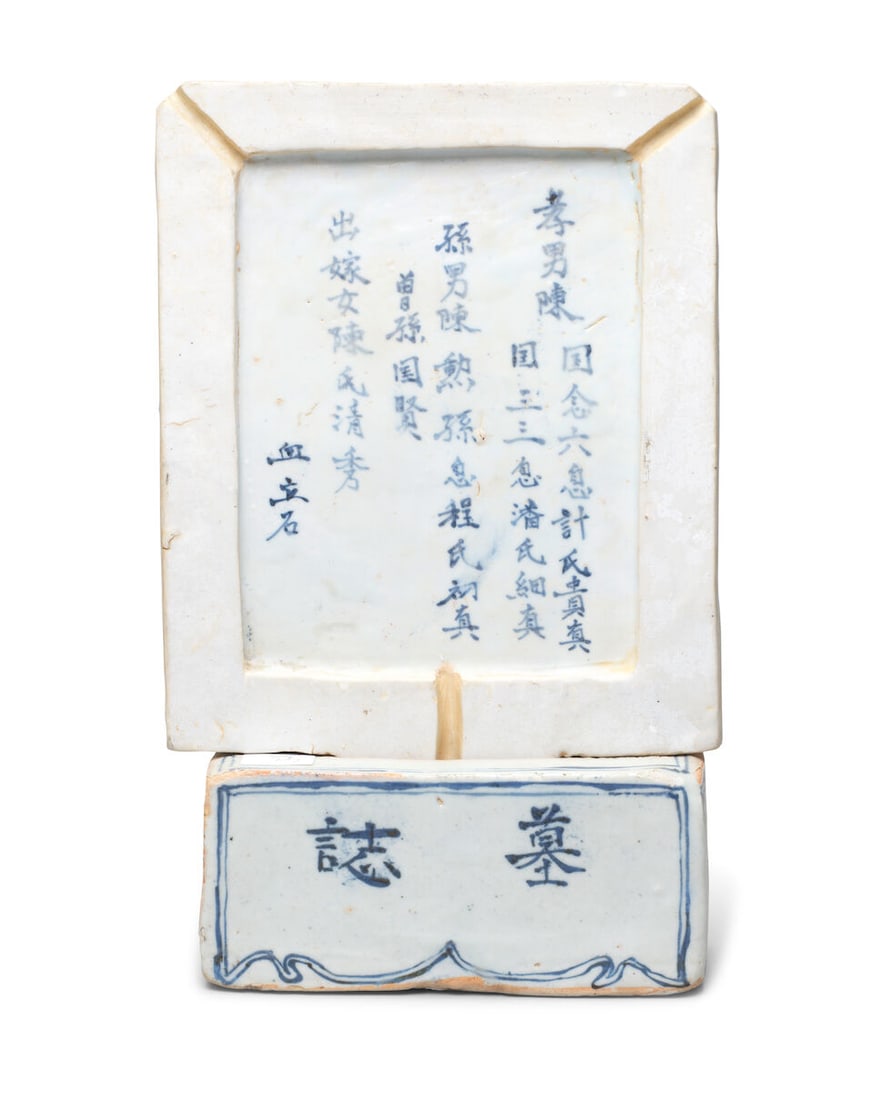 孝男陳
囯念六息計氏貴真
囯三息潘氏細真
孫男陳勲孫息程氏初真
曾孫囯賢
出嫁女陳氏清秀
血立石
墓誌